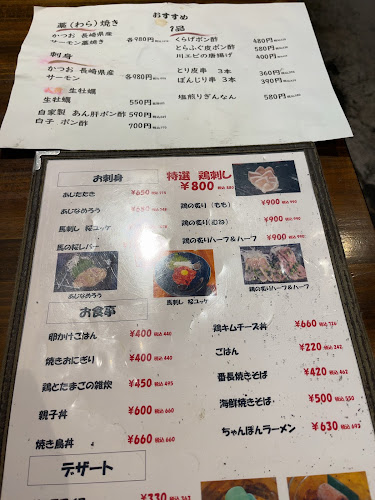 おすすめ
藁(わら)焼き
かつお 長崎県産
サーモン藁焼き
各980円
刺身
かつお 長崎県産
サーモン
各980円
生牡蠣
生牡蠣 550円
自家製 あん肝ポン酢 590円
白子 ポン酢 700円
1品
くらげポン酢 480円
とらふぐ皮ポン酢 580円
川エビの唐揚げ 400円
とり皮串 3本 360円
ぼんじり串 3本 390円
塩煎りぎんなん 580円
お刺身
あじたたき ¥650
あじなめろう
馬刺し 桜ユッケ
馬の桜レバー
特選 鶏刺し
¥800 税込 880
鶏の炙り(もも) ¥900
鶏の炙り ¥900
鶏の炙りハーフ&ハーフ ¥900
あじなめろう
馬刺し 桜ユッケ
鶏の炙りハーフ&ハーフ
お食事
卵かけごはん ¥400 税込 440
焼きおにぎり ¥400 税込 440
鶏とたまごの雑炊 ¥450 税込 495
親子丼 ¥600 税込 660
焼き鳥丼 ¥660
鶏キムチーズ丼 ¥660 税込 726
ごはん ¥220 税込 242
番長焼きそば ¥420 税込 462
海鮮焼きそば ¥500 税込 550
ちゃんぽんラーメン ¥630 税込 693
デザート
¥330 税込 363